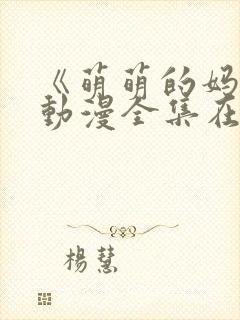 《萌萌的妈
動漫全集在
楊慧